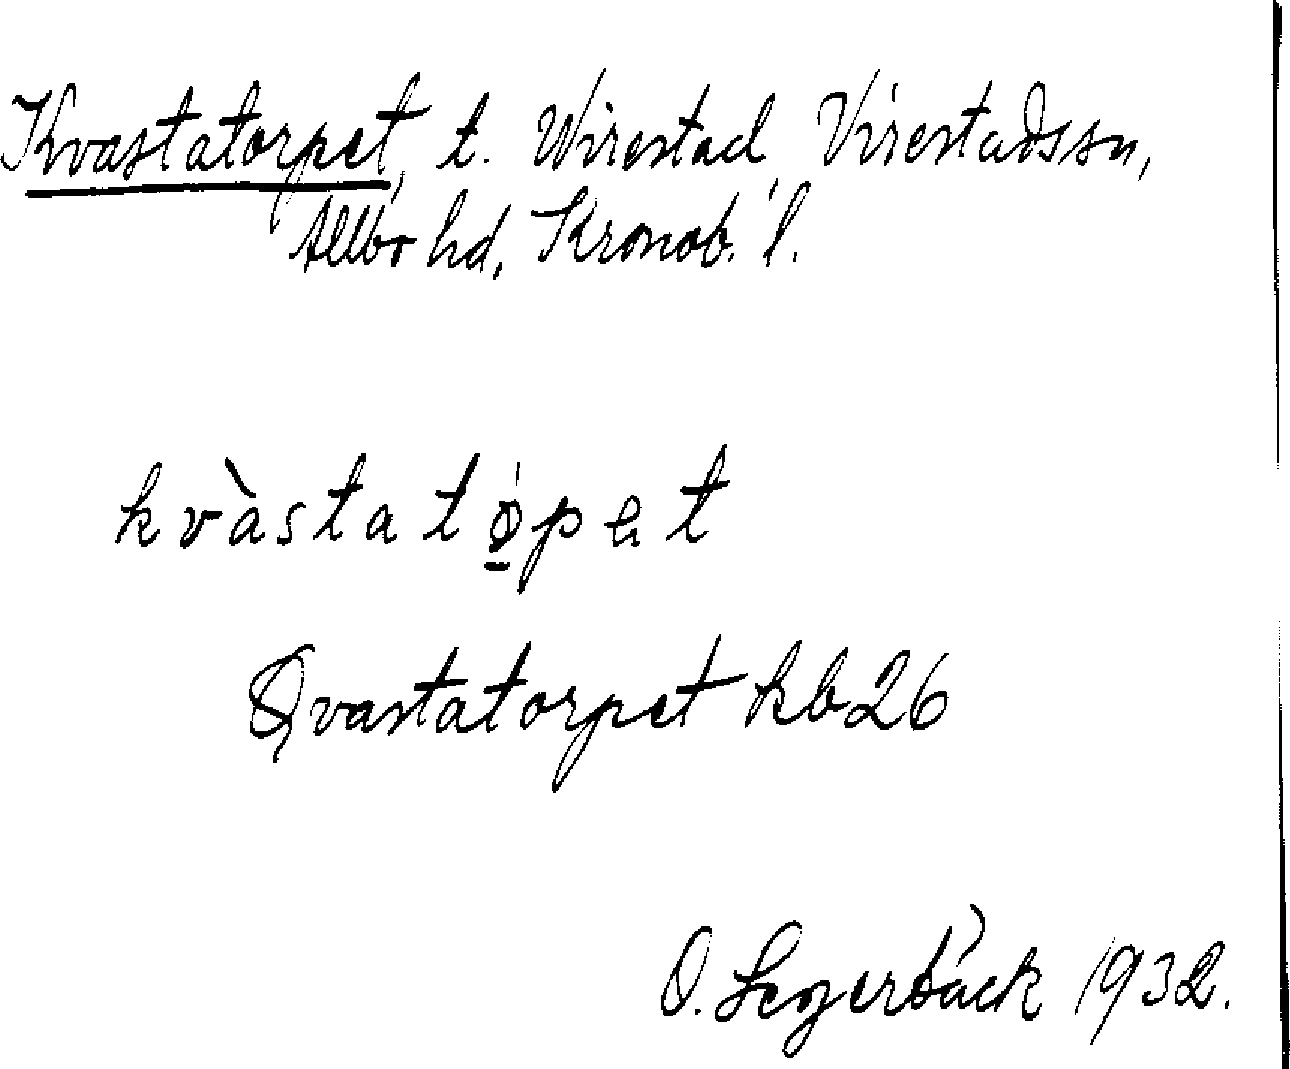 Kvastatorpet, t. Wirestad, Virestadssn,
Allbo hd, Kronob. l.
kvàstatø̠pet
Qvastatorpet kb 26
O. Segerbäck 1932.